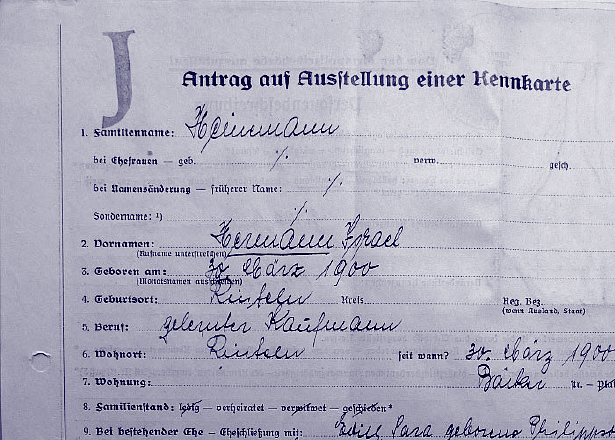 J
Antrag auf Ausstellung einer Kennkarte
1. Familienname: Heinemann
bei Ehefrauen — geb. ·/. verw. gesch.
bei Namensänderung — früherer Name: ·/.
Sondername: ¹) ·/.
2. Vornamen: Hermann Israel
(Rufname unterstreichen)
3. Geboren am: 30. März 1900
(Monatsnamen ausschreiben)
4. Geburtsort: Rinteln Kreis Reg. Bez.
(wenn Ausland, Staat)
5. Beruf: gelernter Kaufmann
6. Wohnort: Rinteln seit wann? 30. März 1900
7. Wohnung: Bäcker Nr. —
8. Familienstand: ledig — verheiratet — verwitwet — geschieden*
9. Bei bestehender Ehe — Eheschließung mit: Sara geborene